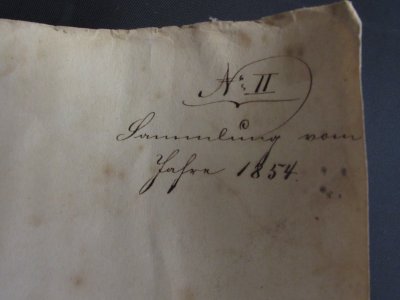 No: II
Sammlung vom
Jahre 1854.